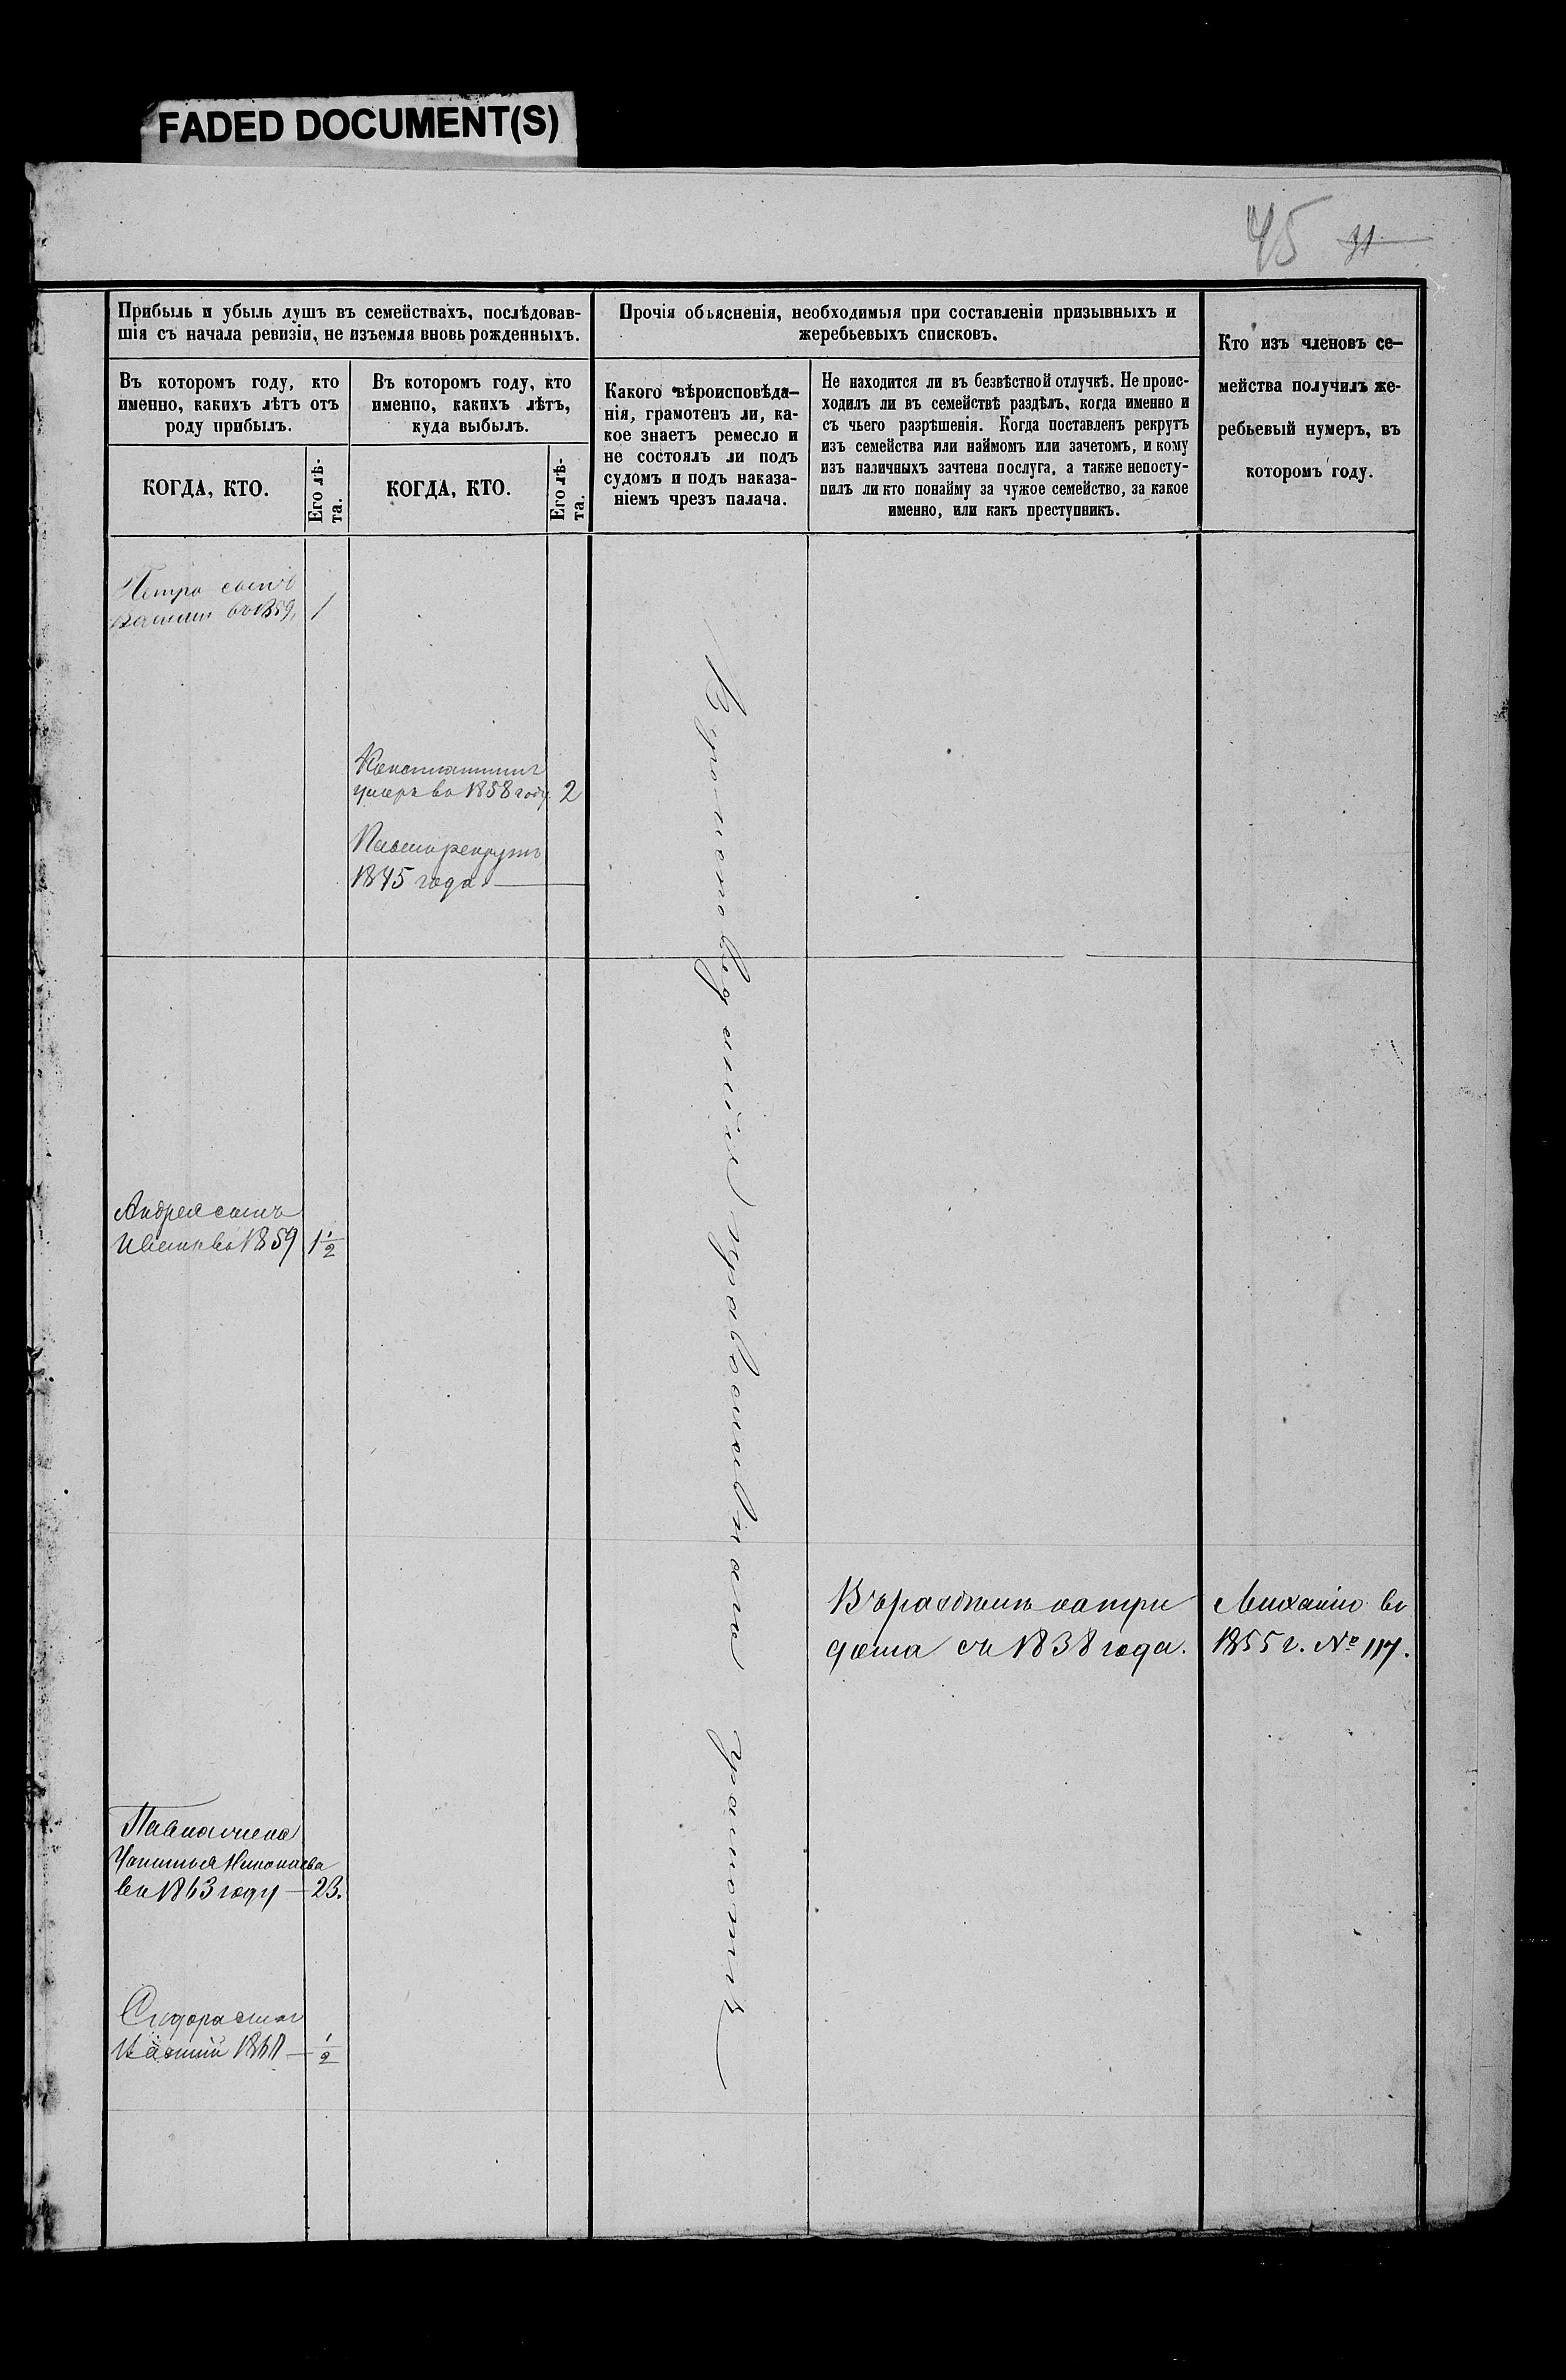 FADED DOCUMENT(S)
45 31
Прибыль и убыль душъ въ семействахъ, послѣдовав-
шія съ начала ревизіи, не изъемля вновь рожденныхъ.
Въ которомъ году, кто
именно, какихъ лѣтъ отъ
роду прибылъ.
КОГДА, КТО.
Его лѣ-
та.
Въ которомъ году, кто
именно, какихъ лѣтъ,
куда выбылъ.
КОГДА, КТО.
Его лѣ-
та.
Прочія объясненія, необходимыя при составленіи призывныхъ и
жеребьевыхъ списковъ.
Какого вѣроисповѣда-
нія, грамотенъ ли, ка-
кое знаетъ ремесло и
не состоялъ ли подъ
судомъ и подъ наказа-
ніемъ чрезъ палача.
Не находится ли въ безвѣстной отлучкѣ. Не проис-
ходилъ ли въ семействѣ раздѣлъ, когда именно и
съ чьего разрѣшенія. Когда поставленъ рекрутъ
изъ семейства или наймомъ или зачетомъ, и кому
изъ наличныхъ зачтена послуга, а также непосту-
пилъ ли кто понайму за чужое семейство, за какое
именно, или какъ преступникъ.
Кто изъ членовъ се-
мейства получилъ же-
ребьевый нумеръ, въ
которомъ году.
Петра сынъ
во 1859, 1
Константинъ
умеръ во 1858 году 2
рекрутъ
1845 года
Андрея сынъ
Иванъ во 1859 1 1/2
Вероисповеданія православнаго
Въ разделе на три
дома съ 1838 года.
Михаило во
1855 г. № 117.
Павла жена
Николаева
во 1863 году — 23.
Сидора сынъ
1/2